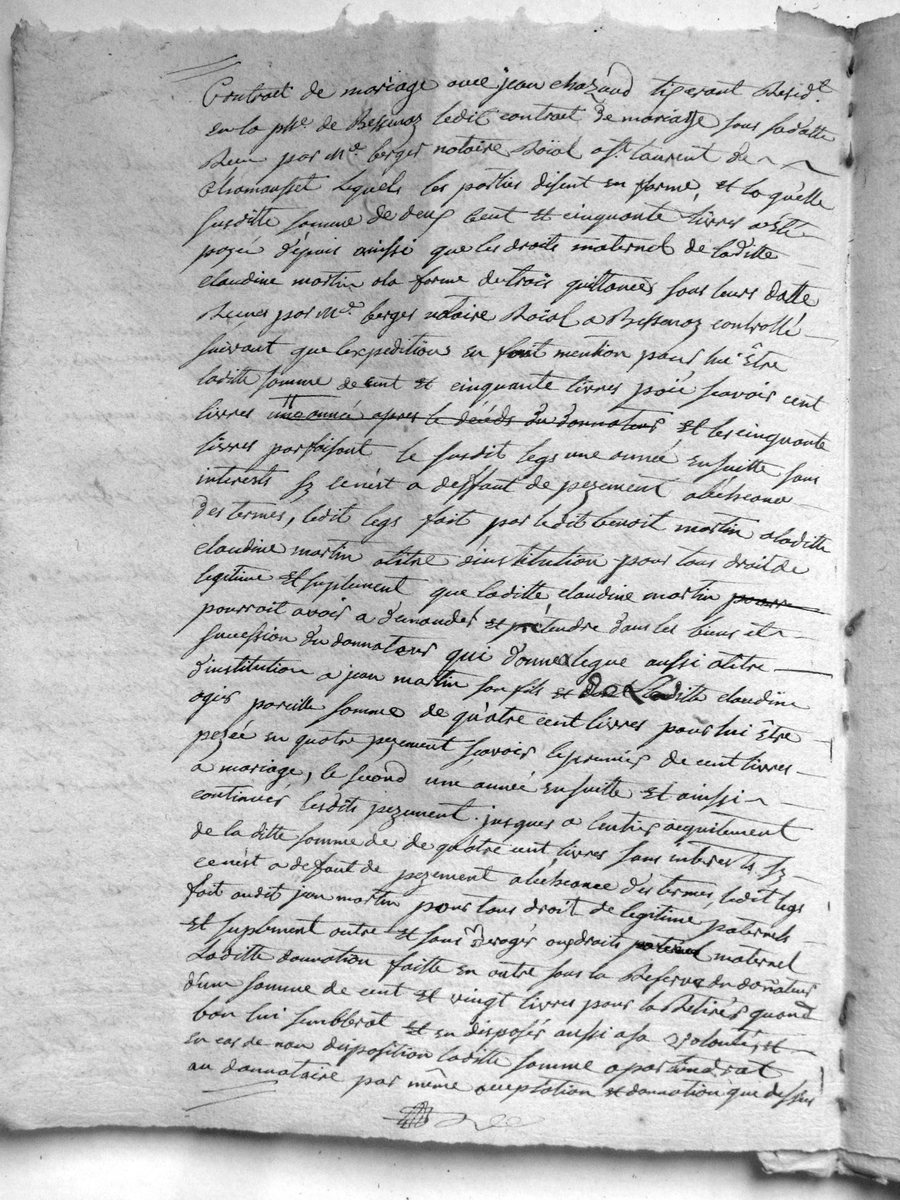 Contract de mariage avec jean chazaud tixerant Resid.t
en la psse. de Bessenaz ledit contract de mariage sous sa datte
Receu par Me. berger notaire Roïal a st. laurent de
Chamousset lequels les parties disent en forme, et laquelle
susditte somme de deux cent et cinquante livres a été
payée dépuis ainsi que les droits maternel de laditte
claudine martin a la forme de trois quittances sous leurs datte
Receues par Me. berger notaire Roïal a Bessenaz controllé
suivant que lexpeditions en font mention pour lui être
laditte somme de cent et cinquante livres paiée scavoir cent
livres une année apres le décéds du donnateur et les cinquante
livres parfaisant le susdit legs une année ensuitte sans
interests sy ce nest a deffaut de payement a lécheance
des termes, ledit legs fait par ledit benoit martin a laditte
claudine martin a titre dinstitution pour tous droit de
legitime et suplement que laditte claudine martin pourr
pourroit avoir a demander et prétendre dans les biens et
succession du donnateur qui donne legue aussi a titre
d'institution a jean martin son fils et de Laditte claudine
ogier pareille somme de quatre cent livres pour lui être
payée en quatre payement scavoir le premier de cent livres
a mariage, le second une année ensuitte et ainsi
continuer lesdits payement jusques a lentier acquitement
de la ditte somme de de quatre cent livres sans interets sy
ce nest a deffaut de payement a lécheance des termes, ledit legs
fait audit jean martin pour tous droit de legitime paternels
et suplement outre et sans déroger aux droits paternel maternel
Laditte donnation faitte en outre sous la Reserve du donateur
d'une somme de cent et vingt livres pour la Retirer quand
bon lui semblerat et en disposer aussi a sa volonté, et
en cas de non disposition laditte somme apartiendrat
au donnataire par même acceptation et donnation que dessus